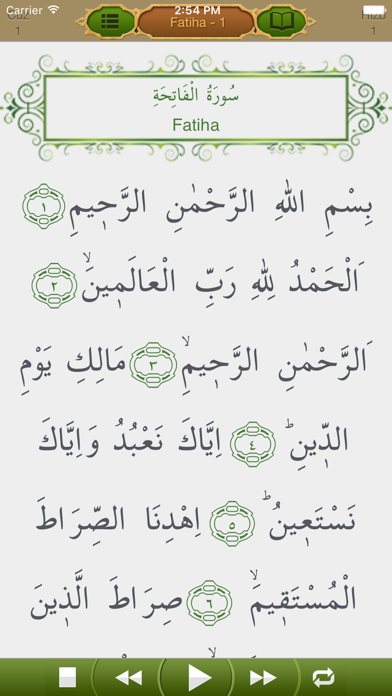 Carrier 2:54 PM
Cüz Fatiha - 1 Hizb
1 1
سُورَةُ الْفَاتِحَةِ
Fatiha
بِسْمِ اللهِ الرَّحْمٰنِ الرَّحٖيمِ ١
اَلْحَمْدُ لِلّٰهِ رَبِّ الْعَالَمٖينَۙ ٢
اَلرَّحْمٰنِ الرَّحٖيمِۙ ٣ مَالِكِ يَوْمِ
الدّٖينِؕ ٤ اِيَّاكَ نَعْبُدُ وَاِيَّاكَ
نَسْتَعٖينُؕ ٥ اِهْدِنَا الصِّرَاطَ
الْمُسْتَقٖيمَۙ ٦ صِرَاطَ الَّذٖينَ